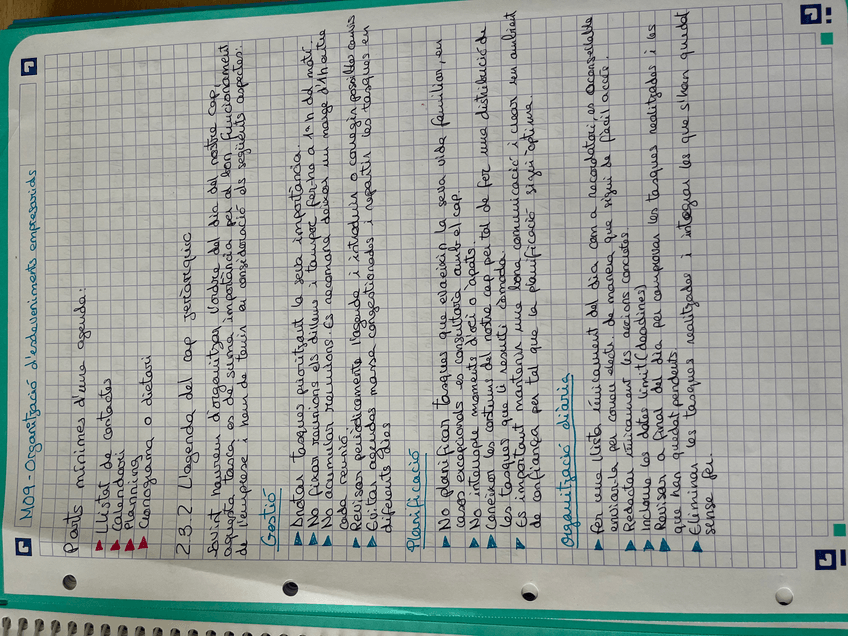 M09 - Organització d'esdeveniments empresarials
Parts mínimes d'una agenda:
► Llistat de contactes
► Calendari
► Planning
► Cronograma o dietari
2.3.2 L'agenda del cap jeràrquic
Sovint haurem d'organitzar l'ordre del dia del nostre cap,
aquesta tasca es de suma importància per al bon funcionament
de l'empresa i hem de tenir en consideració els següents aspectes:
Gestió
► Anotar tasques prioritzant la seva importància.
► No fixar reunions els dilluns i tampoc fer-ho a 1a h del matí.
► No acumular reunions. Es recomana deixar un marge d'1h entre
cada reunió.
► Revisar periòdicament l'agenda i introduir o corregir possibles canvis
► Evitar agendes massa congestionades i repartir les tasques en
diferents dies
Planificació
► No planificar tasques que afecin la seva vida familiar, en
casos excepcionals es consultaria amb el cap.
► No interrompre moments d'oci o àpats.
► Coneixer les costums del nostre cap per tal de fer una distribució de
les tasques que li resulti còmoda.
► És important mantenir una bona comunicació i crear un ambient
de confiança per tal que la planificació sigui òptima.
Organització diària
► Fer una llista únicament del dia com a recordatori, es aconsellable
enviarla per correu electr. de manera que sigui de fàcil accés.
► Redactar únicament les accions concretes.
► Incloure les dates límit (deadlines)
► Revisar a final del dia per comprovar les tasques realitzades i les
que han quedat pendents.
► Eliminar les tasques realitzades i integrar les que s'han quedat
sense fer.